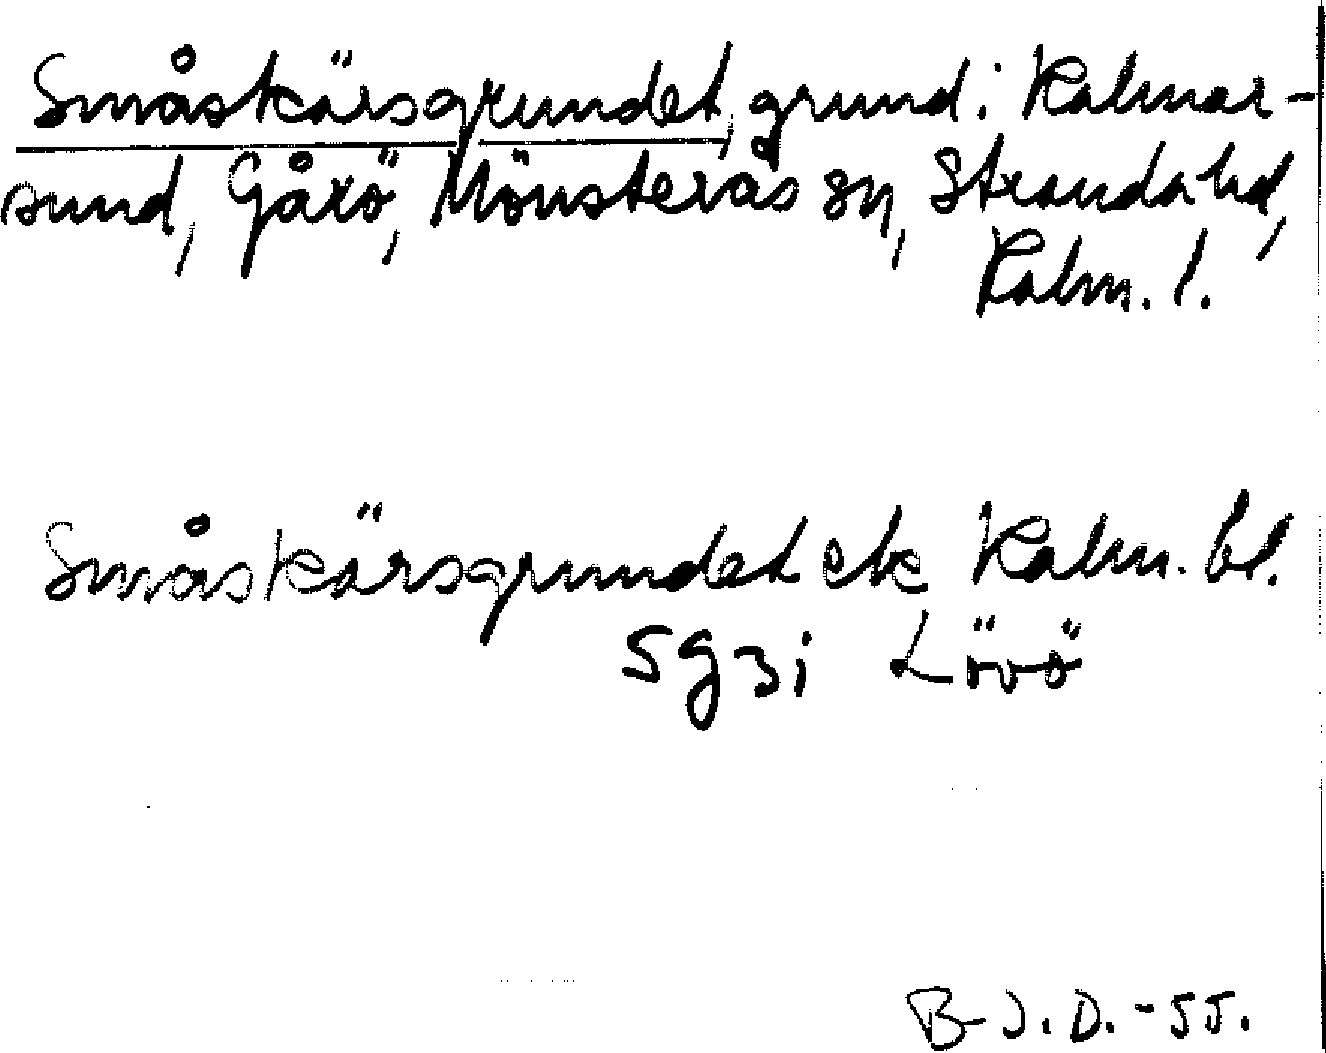 Småskärsgrundet, grund i Kalmar-
sund, Gåxö, Mönsterås sn, Stranda hd,
Kalm. l.
Småskärsgrundet ek Kalm. bl.
5g3i Lövö
B-J.D.-55.